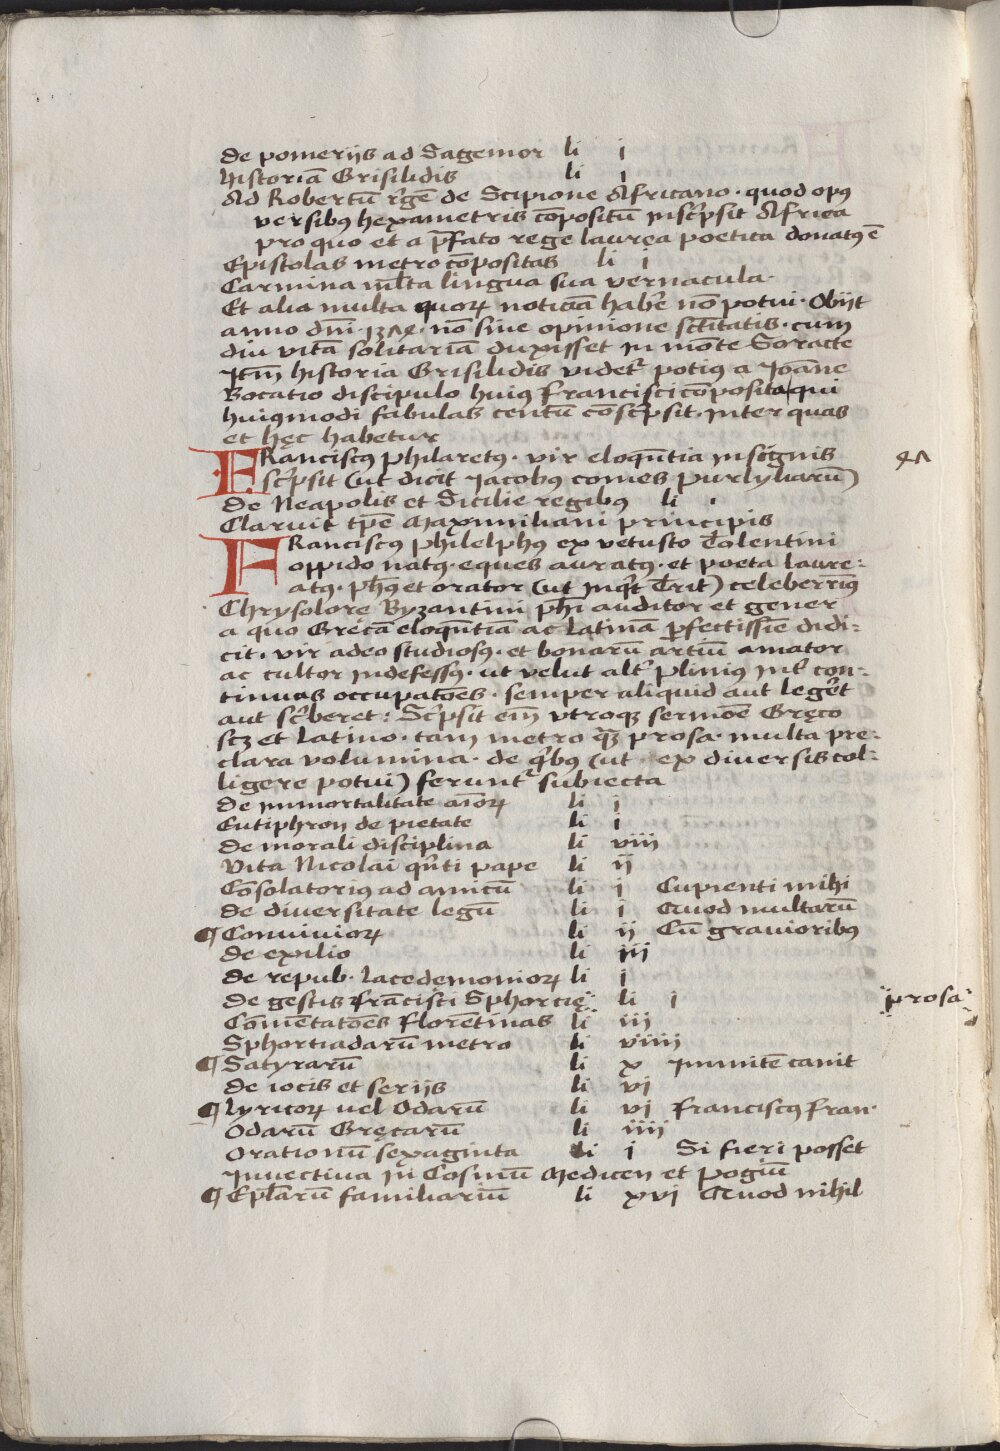 de pomerijs ad Sagemor li j
historiā Grisilidis li j
Ad Robertū r̄gē de Scipione Africano · quod opꝰ
versibꝰ hexametris cōpositū inscr̄psit Africa
pro quo et a p̄fato rege laurea poetica donatꝰ ē
Epistolas metro cōpositas li j
Carmina ml̄ta lingua sua vernacula ·
Et alia multa quoꝝ noticiā habēr nō potui · Obijt
anno dn̄i · nō sine opinione sctītatis · cum
diu vitā solitariā duxisset in mōte Soracte
Itm̄ historia Grisilidis videtr̄ potius a Joāne
Bocatio discipulo huius francisci cōposita qui
huiꝰmodi fabulas centū cōscr̄psit · inter quas
et hęc habetur
FRanciscꝰ philaretꝰ · vir eloquētia insignis
scr̄psit (ut dicit Jacobus comes purlyliarū)
de Neapolis et Sicilie regibꝰ li ·
Claruit tp̄e Maximiliani principis
FRanciscꝰ philelphꝰ ex vetusto Tolentini
oppido natꝰ · eques auratꝰ · et poeta laure:
atꝰ · ph̄ꝰ et orator (ut inq̄t Trit̄) celeberrīꝰ
Chrysolorę Byzantini ph̄i auditor et gener
a quo Gręcā eloquētiā ac latinā ꝑfectissīe didi:
cit · vir adeo studiosꝰ · et bonarū artiū amator
ac cultor indefessꝰ · ut velut altr̄ plinius int̄ con:
tinuas occupatōes · semper aliquid aut legēt
aut scr̄beret : Scr̄psit em̄ vtroqꝫ sermōe Gręco
scꝫ et latino · tam metro qꝫ prosa · multa pre:
clara volumina · de qꝫbus (ut ex diversis col:
ligere potui) ferunt̄ subiecta
de immortalitate aīoꝝ li j
Eutiphron de pietate li j
de morali disciplina li viij
Vita Nicolai qn̄ti pape li ij
Cōsolatoriꝰ ad amicū li j Cupienti mihi
de diversitate legū li j Quod multarū
¶ Conviuioꝝ li ij Cū gravioribꝰ
de exilio li iij
de repub · lacedemonioꝝ li j
de gestis frācisci Sphorcię li j
prosa
Cōmētatōes florētinas li iij
Sphortiadarū metro li viiij
¶ Satyrarū li x Immitē canit
de iocis et serijs li vj
¶ lyricoꝝ vel Odarū li vj franciscꝰ fran ·
Odarū Gręcarū li iiij
Orationū sexaginta li j Si fieri posset
Invectiva in Cosmū Medicen et pogiū
¶ Ep̄larū familiariū li xvj Quod nihil